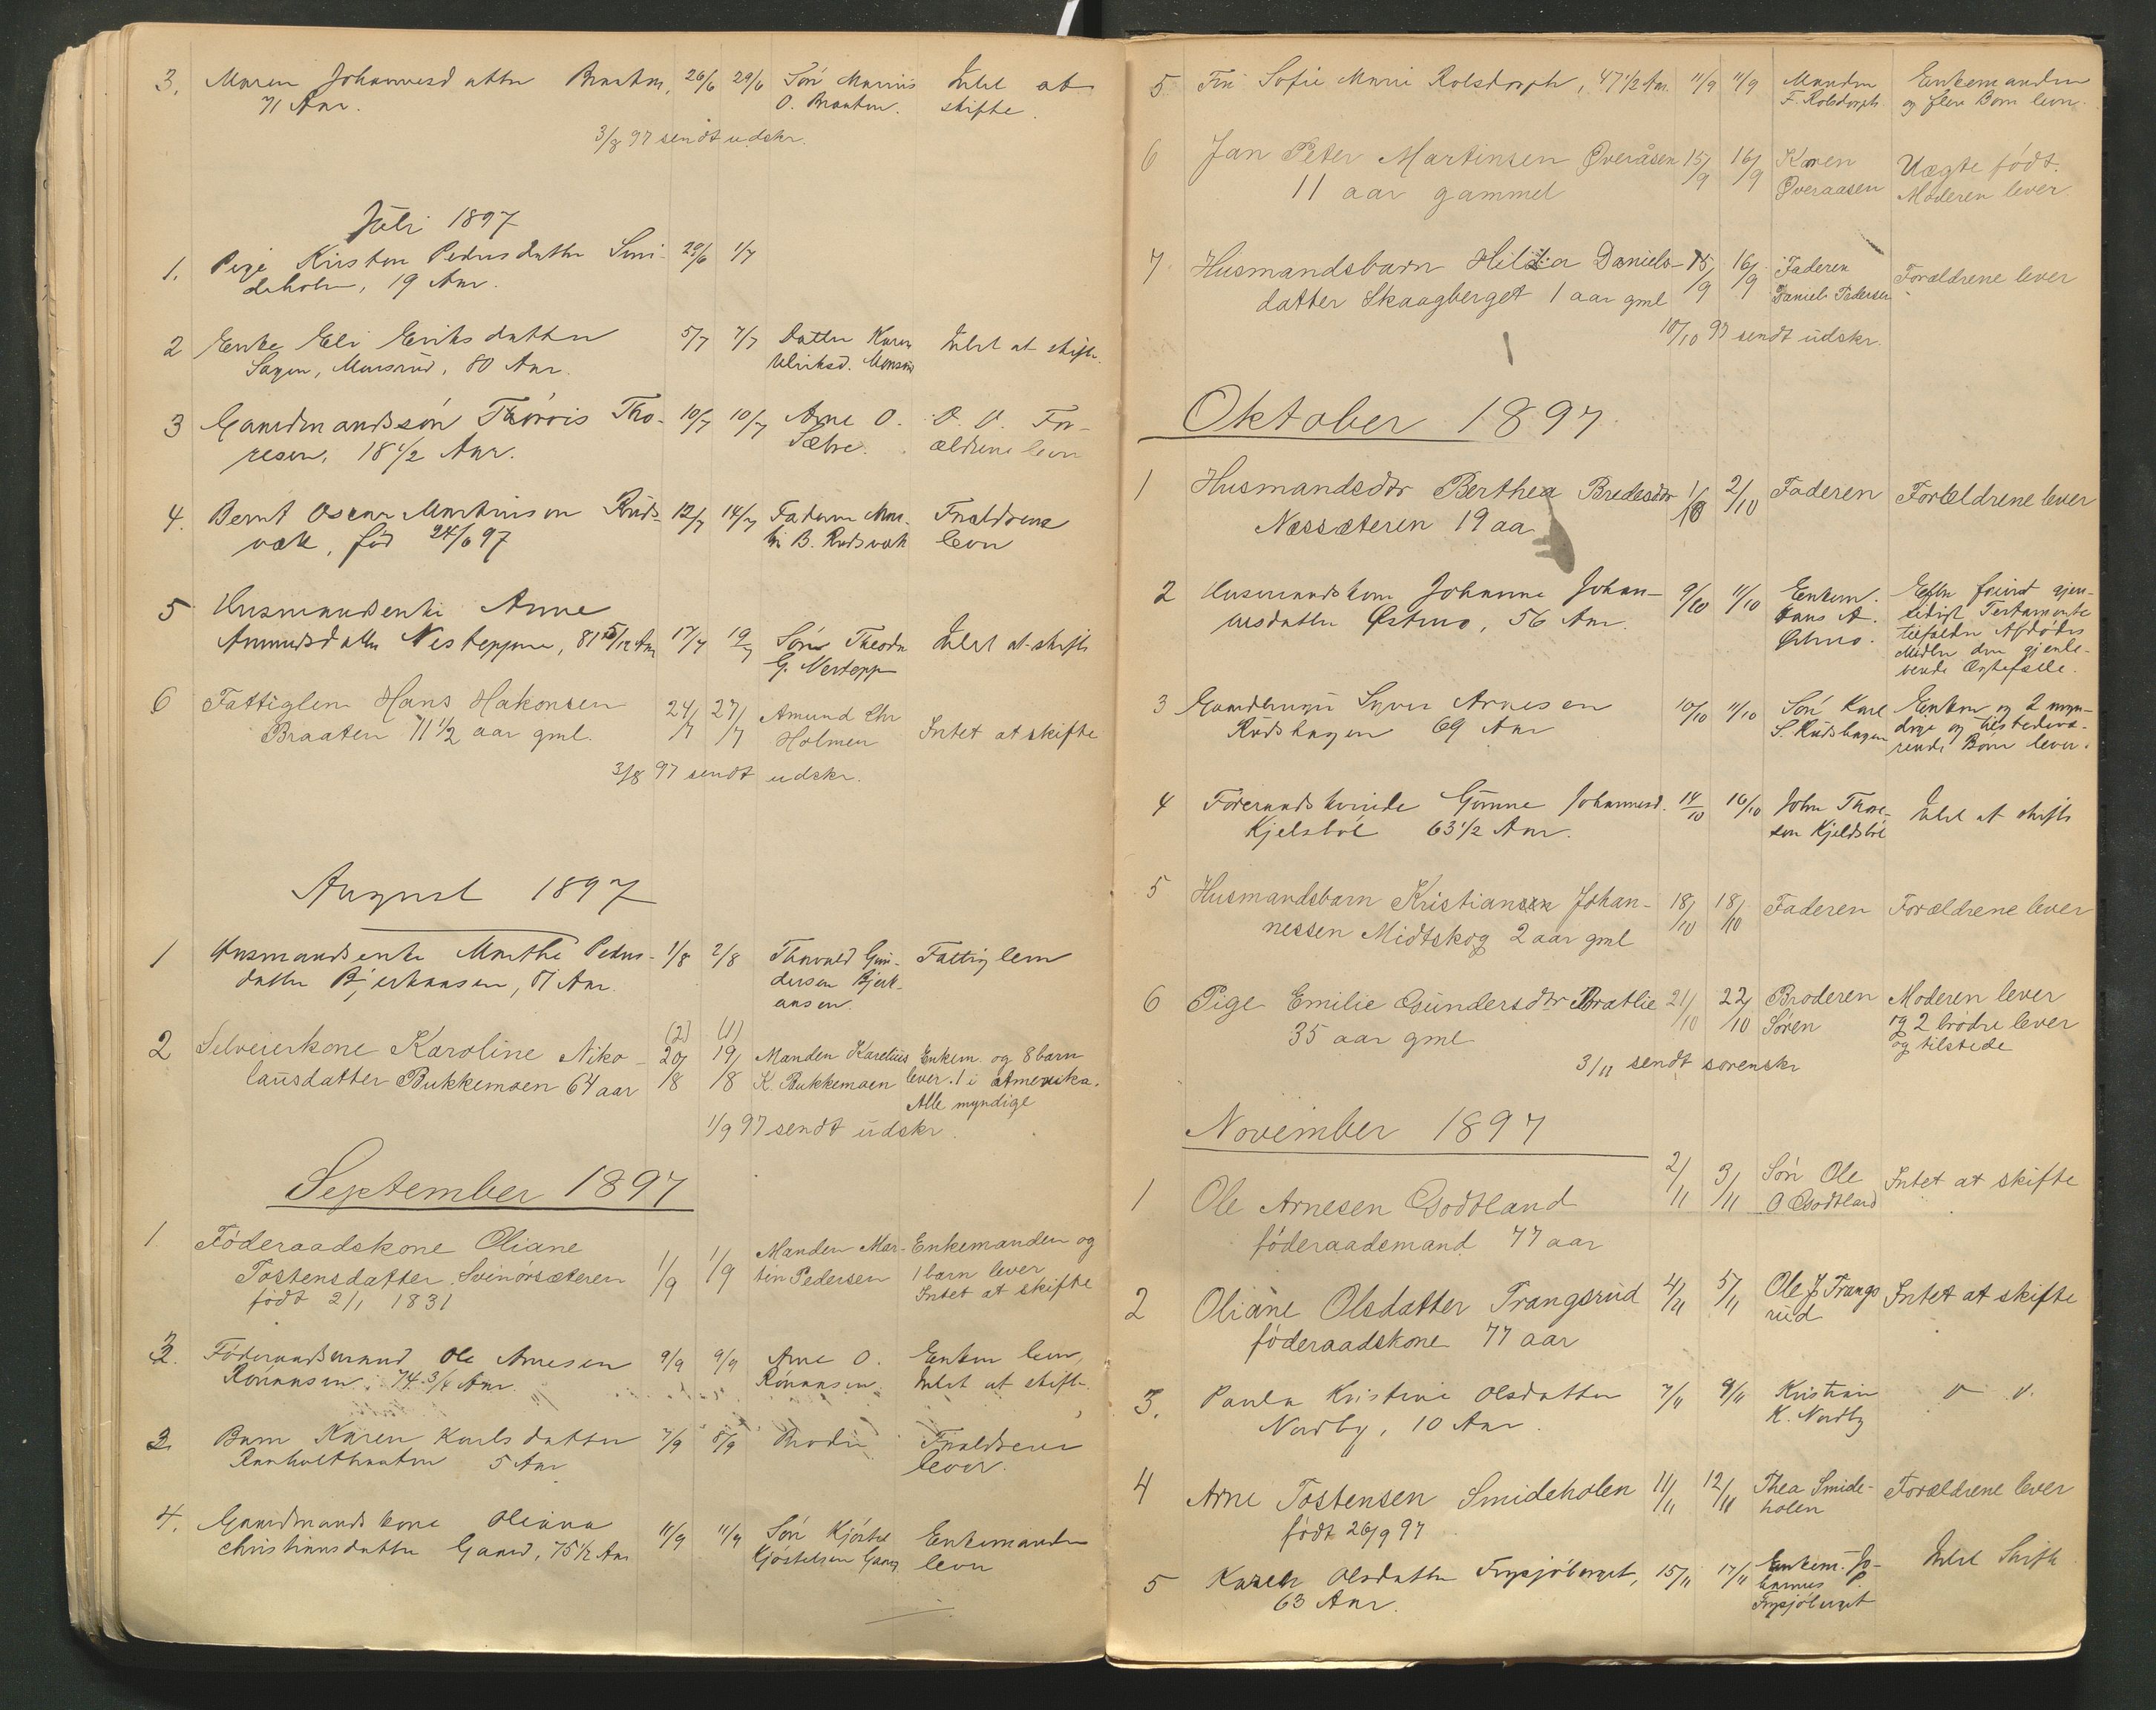 3. Maren Johannesdatter Braaten, 26/6 29/6 Søn Marius Intet at
71 Aar. O. Braaten. skifte.
3/8 97 sendt udskr.
Juli 1897
1. Pige Kirsten Pedersdatter Smi- 29/6 1/7
deholen, 19 Aar.
2 Enke Eli Eriksdatter 5/7 7/7 Datter Karen Intet at skifte.
Sagen, Monsrud, 80 Aar. Ulriksd. Monsrud
3 Gaardmandssøn Thorvis Tho- 10/7 10/7 Arne O. O. O. For-
resen, 18 1/2 Aar. Sætre. ældrene lever
4. Bernt Oscar Martinsen Ruds- 12/7 14/7 Faderen Mar- Forældrene
væk, fød 24/6 97 tin B. Rudsvæk lever
5 Husmandsenke Anne
Amundsdatter Nesteppen, 81 5/12 Aar 17/7 19/7 Sønn Theodor Intet at skifte
G. Nestepp
6 Fattiglem Hans Hakonsen 24/7 27/7 Amund Chr Intet at skifte
Braaten 71 1/2 aar gml. Holmen
3/8 97 sendt udskr.
August 1897
1 Husmandsenke Marthe Peders- 1/8 2/8 Thorvald Gun- Fattiglem
datter Bjerkaasen, 81 Aar. dersen Bjerk-
aasen.
(2) (1)
2 Selveierkone Karoline Niko- 20/8 19/8 Manden Karelius Enkem. og 8 barn
lausdatter Bukkemoen 64 aar K. Bukkemoen lever. 1 i Amerika.
Alle myndige
1/9 97 sendt udskr.
September 1897
1 Föderaadskone Oliane 1/9 1/9 Manden Mar- Enkemanden og
Tostensdatter Svinörsæteren tin Pedersen 1 barn lever
født 2/1 1831 Intet at skifte
2. Föderaadsmand Ole Arnesen 9/9 9/9 Arne O. Enken lever,
Rönaasen, 74 3/4 Aar. Rönaasen Intet at skifte.
3. Barn Karen Karlsdatter 7/9 8/9 Forældrene
5 Aar lever.
4. Gaardmandskone Oliana 11/9 11/9 Søn Kjøstel Enkemanden
Christiansdatter Gaard, 75 1/2 Aar Kjøstelsen Gaard lever
5. Fru Sofie Marie Rolsdorph, 47 1/2 Aar. 11/9 11/9 Manden Enkemanden
F. Rolsdorph og flere Børn lever.
6 Jan Peter Martinsen Øveråsen 15/9 16/9 Karen Uægte født.
11 aar gammel Øveraasen Moderen lever.
7 Husmandsbarn Hilda Daniels- 15/9 16/9 Faderen Forældrene lever
datter Skaagberget 1 aar gml Daniel Pedersen
10/10 97 sendt udskr.
Oktober 1897
1 Husmandsdtr Berthea Bredesdtr 1/10 2/10 Faderen Forældrene lever
Næssæteren 19 aa
2 Husmandskone Johanne Johan- 9/10 11/10 Enkem. Efter feiret gjen-
nesdatter Østmo, 56 Aar. Hans A. sidigt Testamente
Østmo. tilfalder Afdødes
Midler den gjenle-
vende Ægtefælle.
3 Gaardbruger Syver Arnesen 10/10 11/10 Søn Karl Enken og 2 myn-
Rudshagen 69 Aar S. Rudshagen dige og tilstedevæ-
rende Børn lever.
4 Föderaadskvinde Gunne Johannesd. 14/10 16/10 John Thore- Intet at skifte
Kjelsböl 63 1/2 Aar. sen Kjeldsböl
5 Husmandsbarn Kristiansen Johan- 18/10 18/10 Faderen Forældrene lever
nessen Midtskog 2 aar gml
6 Pige Emilie Gundersdtr Bratlie 21/10 22/10 Broderen Moderen lever
35 aar gml Søren og 2 brødre lever
og tilstede
3/11 sendt sorenskr
November 1897
1 Ole Arnesen Godtland 2/11 3/11 Søn Ole Intet at skifte
föderaadsmand 77 aar O Godtland
2 Oliane Olsdatter Trangsrud 4/11 5/11 Ole J Trangs Intet at skifte
föderaadskone 77 aar rud
3. Paula Kristine Olsdatter 7/11 9/11 Kristian O O.
Nordby, 10 Aar. K. Nordby
4 Arne Tostensen Smideholen 11/11 12/11 Thea Smide- Forældrene lever
født 26/9 97 holen
5 Karen Olsdatter Frysjöberget, 15/11 17/11 Enkem. Jo- Intet Skifte
63 Aar. hannes P.
Frysjöberget